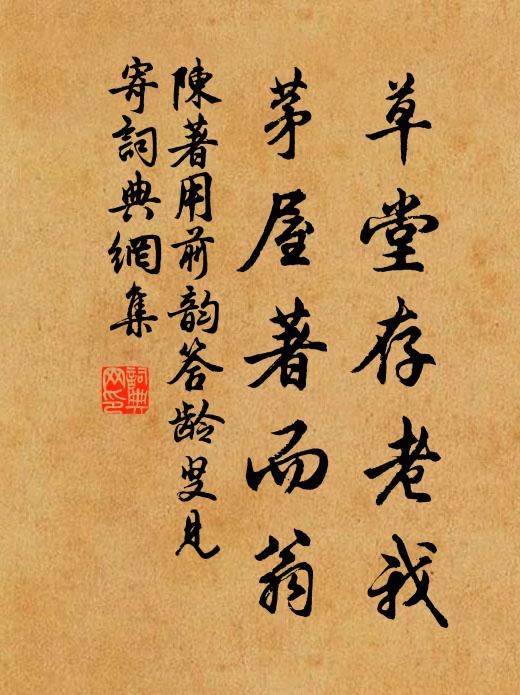 草堂存老我
茅屋著而翁
陳著用前韵答龄叟見
寄詞典網集
詞典網印